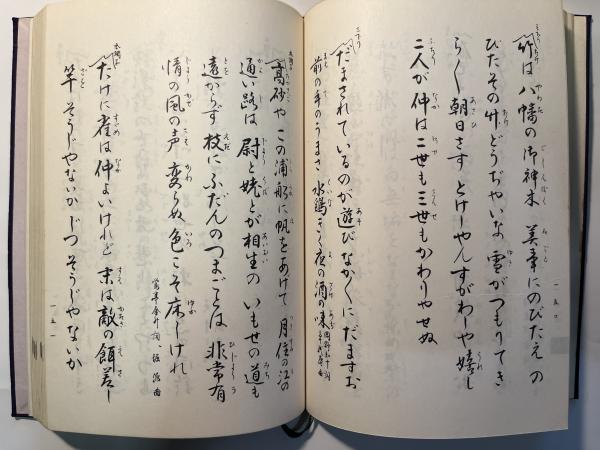 竹は八幡の御神木　美事にのびたえの
びたその竹どうぢやいな　雪がつもりてき
らく朝日さす　とけーやんすがわーや嬉し
二人が仲は二世も三世もかわりやせぬ
三下り
だまされているのが遊びなかくにだますお
前の手のうまさ　水鶏きく夜の酒の味
一五〇
本調子
高砂や　この浦舩に帆をあけて　月住の江の
通い路は　尉と姥とが相生の　いもせの道も
遠からず　枝にふだんのつまごとは　非常有
情の風の声　変らぬ色こそ床しけれ
本調子
たけに雀は仲よいけれど　末は敵の餌差し
竿　そうじやないか　じつそうじやないか
一五一